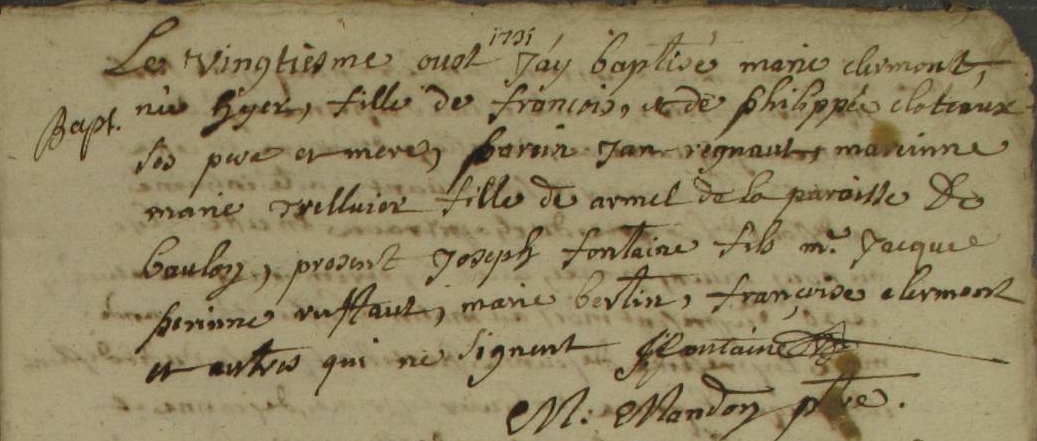 1731
Le vingtiesme oust J'ay baptisé marie clermont,
Bapt. née hyer, fille de francois, et de philippée cloteaux
ses pere et mere, parein Jan regnaut, mareinne
marie fille de armel de la paroisse De
baulon, present Joseph fontaine fils mr. Jacque
perinne ruffaut, marie bertin, françoise clermont
et autres qui ne signent JFontaine
M: Mandon ptre.